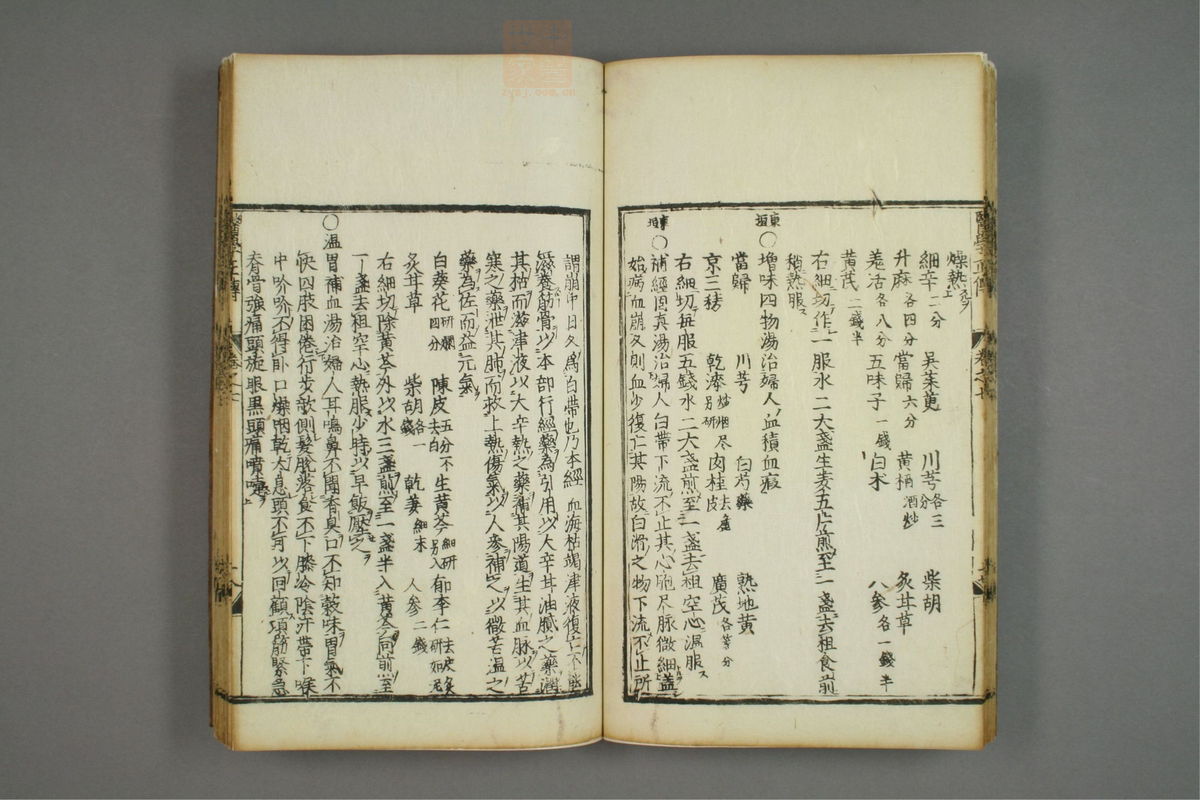 燥熱
細辛二分 吳茱萸 川芎各三分 柴胡
升麻各四分 當歸六分 黃栢酒炒 炙甘草
羗活各八分 五味子一錢 白朮 人參各一錢半
黃茂二錢半
右細切作一服水二大盞生麦五片煎至一盞去柤食前
稍熱服
東垣○增味四物湯治婦人血積血瘕
當歸 川芎 白芍藥 熟地黃
京三稜 乾漆炒烟尽另研 肉桂去麄皮 廣茂各等分
右細切每服五錢水二大盞煎至一盞去柤空心漏服
東垣○補經固真湯治婦人白帶下流不止其心胞尽脉微細盖
始病血崩久則血少復亡其陽故白滑之物下流不止所
謂崩中日久為白帶也乃本經血海枯竭津液復亡不能
滋養筋骨以本部行經藥為引用以大辛甘油膩之藥潤
其枯而滋津液以大辛熱之藥補其陽道生其血脉以苦
寒之藥泄其肺而救上熱傷氣以人參補之以微苦温之
藥為佐而益元氣
白葵花研爛四分 陳皮五分不去白 生黃芩細研另入 郁李仁去皮尖研如泥
炙甘草 柴胡各一錢 乾姜細末 人参二錢
右細切除黃芩外以水三盞煎至一盞半入黃芩同前至
一盞去柤空心熱服少時以早飯壓之
○温胃補血湯治婦人耳鳴鼻不聞香臭口不知穀味胃氣不
快四肢困倦行步欹側髮脫落食不下膝冷陰汗帶下喉
中吤吤不得卧口燥咽乾太息頭不可以回顧項筋緊急
脊骨強痛頭旋眼黑頭痛噴嚏